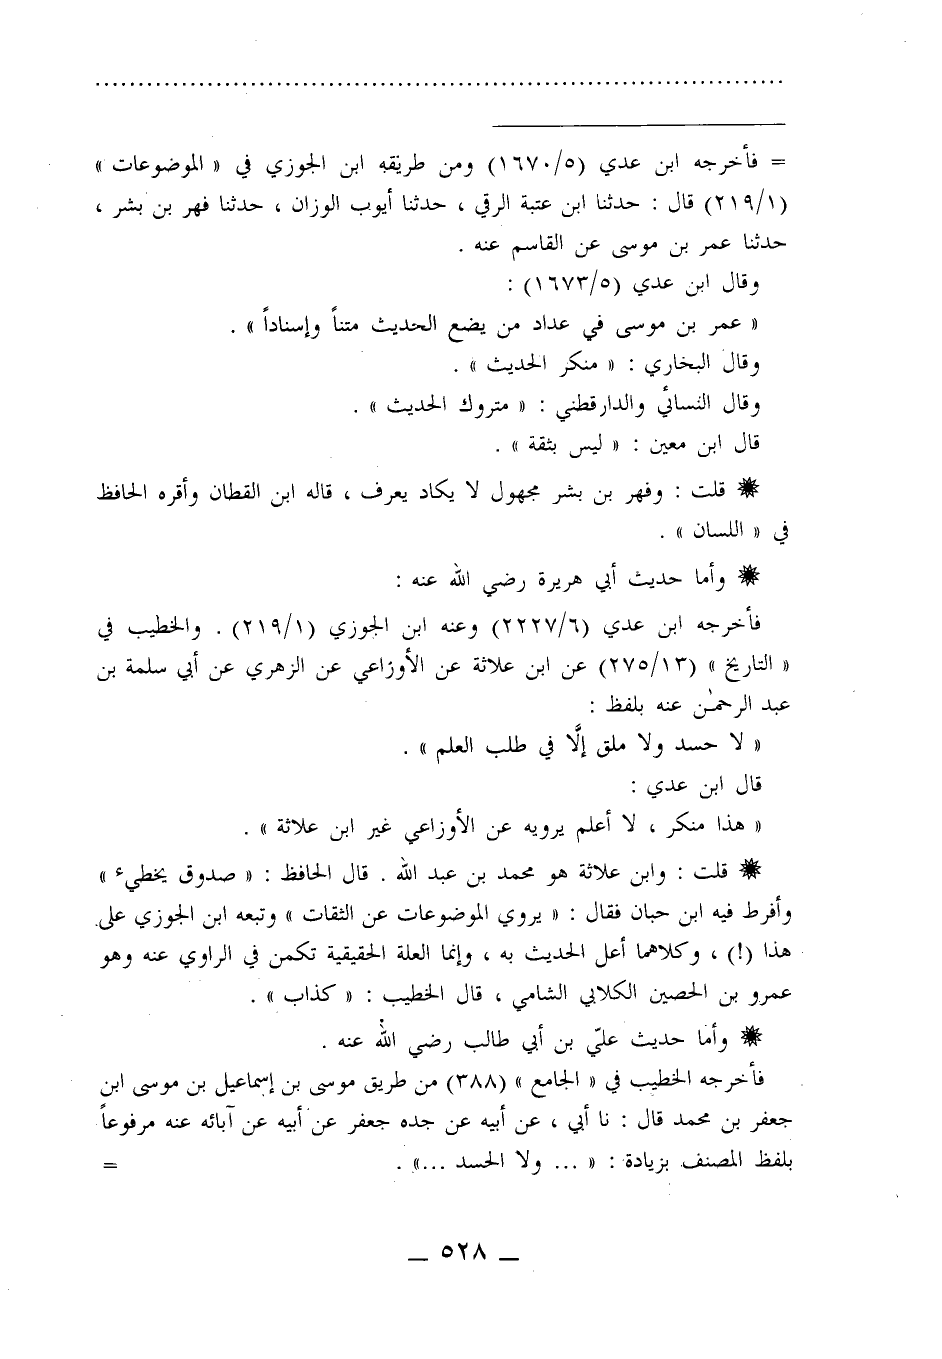 = فأخرجه ابن عدي (١٦٧٠/٥) ومن طريقه ابن الجوزي في « الموضوعات »
(٢١٩/١) قال : حدثنا ابن عتبة الرقي ، حدثنا أيوب الوزان ، حدثنا فهر بن بشر ،
حدثنا عمر بن موسى عن القاسم عنه .
وقال ابن عدي (١٦٧٣/٥) :
« عمر بن موسى في عداد من يضع الحديث متناً وإسناداً » .
وقال البخاري : « منكر الحديث » .
وقال النسائي والدارقطني : « متروك الحديث » .
قال ابن معين : « ليس بثقة » .
❋ قلت : وفهر بن بشر مجهول لا يكاد يعرف ، قاله ابن القطان وأقره الحافظ
في « اللسان » .
❋ وأما حديث أبي هريرة رضي الله عنه :
فأخرجه ابن عدي (٢٢٢٧/٦) وعنه ابن الجوزي (٢١٩/١) . والخطيب في
« التاريخ » (٢٧٥/١٣) عن ابن علاثة عن الأوزاعي عن الزهري عن أبي سلمة بن
عبد الرحمٰن عنه بلفظ :
« لا حسد ولا ملق إلَّا في طلب العلم » .
قال ابن عدي :
« هذا منكر ، لا أعلم يرويه عن الأوزاعي غير ابن علاثة » .
❋ قلت : وابن علاثة هو محمد بن عبد الله . قال الحافظ : « صدوق يخطيء »
وأفرط فيه ابن حبان فقال : « يروي الموضوعات عن الثقات » وتبعه ابن الجوزي على
هذا (!) ، وكلاهما أعل الحديث به ، وإنما العلة الحقيقية تكمن في الراوي عنه وهو
عمرو بن الحصين الكلابي الشامي ، قال الخطيب : « كذاب » .
❋ وأما حديث عليّ بن أبي طالب رضي الله عنه .
فأخرجه الخطيب في « الجامع » (٣٨٨) من طريق موسى بن إسماعيل بن موسى ابن
جعفر بن محمد قال : نا أبي ، عن أبيه عن جده جعفر عن أبيه عن آبائه عنه مرفوعاً
بلفظ المصنف بزيادة : « ... ولا الحسد ...» . =
_ ٥٢٨ _